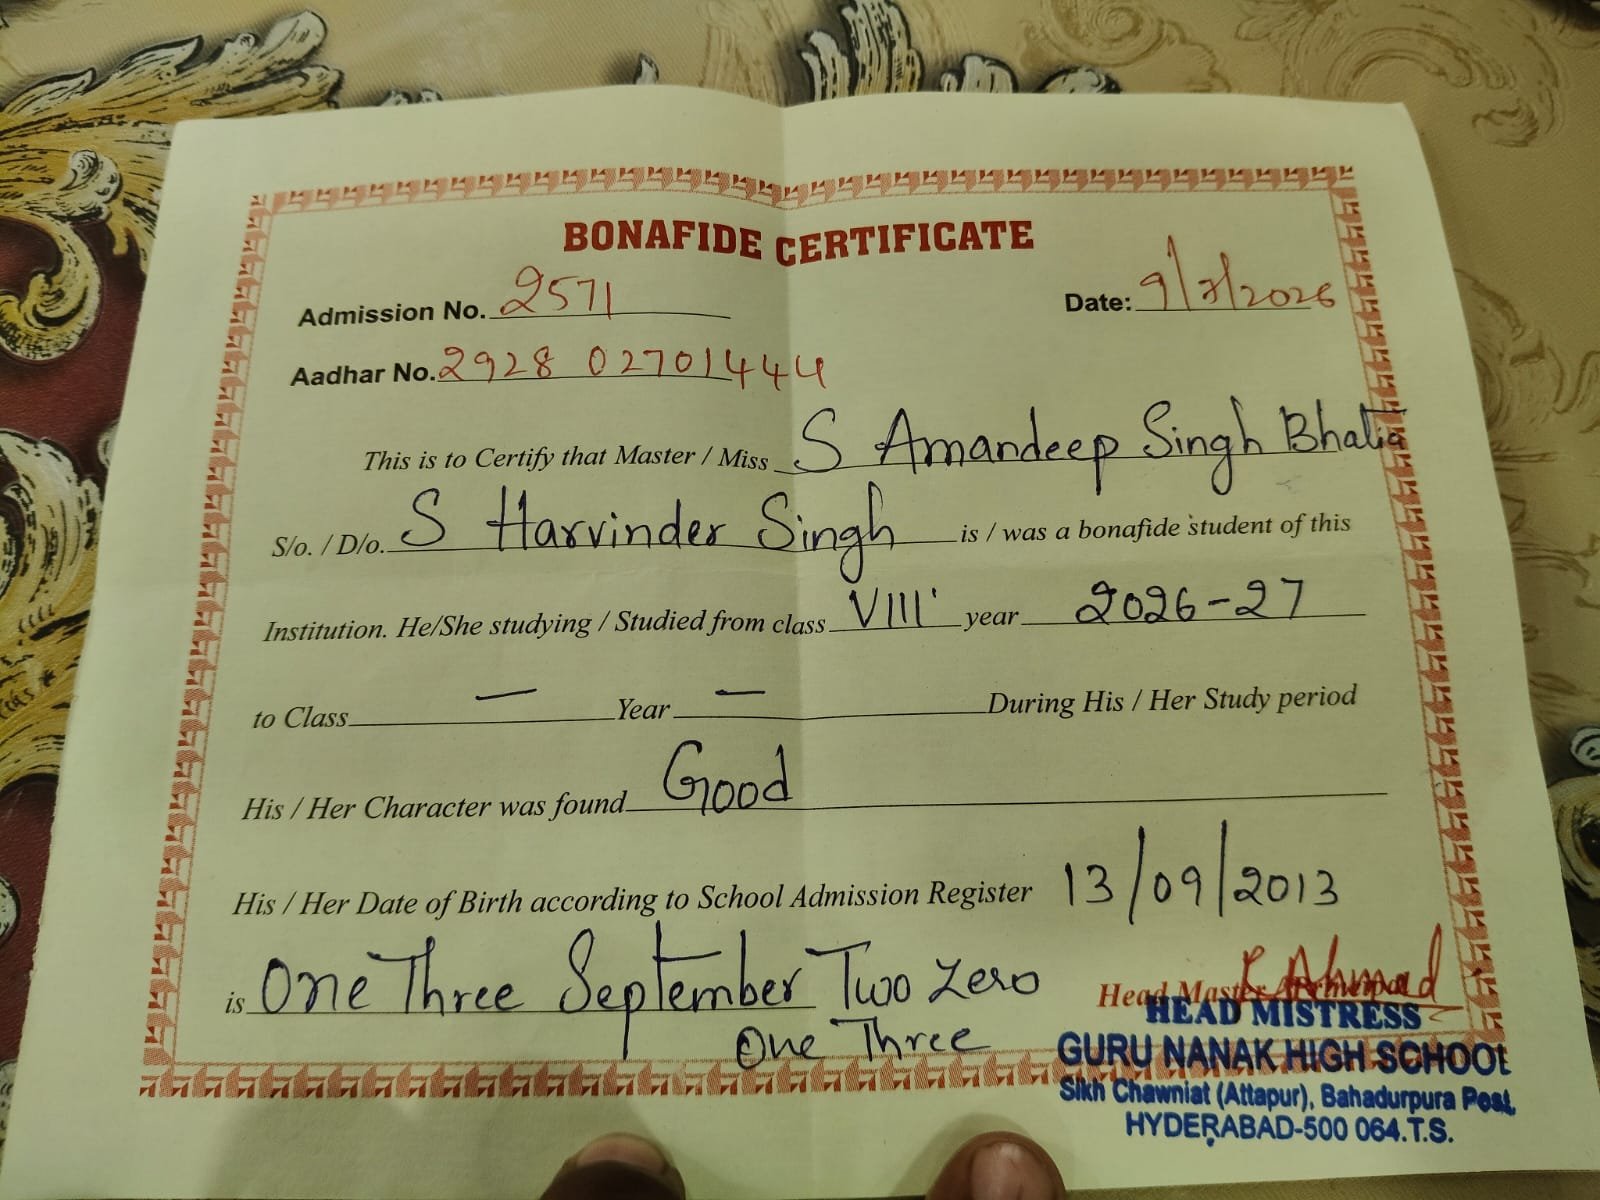 BONAFIDE CERTIFICATE
Admission No. 2571 Date: 9/7/2026
Aadhar No. 2928 02701444
This is to Certify that Master / Miss S Amandeep Singh Bhatia
S/o. / D/o. S Harvinder Singh is / was a bonafide student of this
Institution. He/She studying / Studied from class VIII' year 2026-27
to Class — Year — During His / Her Study period
His / Her Character was found Good
His / Her Date of Birth according to School Admission Register 13/09/2013
is One Three September Two Zero
One Three
Head Master
HEAD MISTRESS
GURU NANAK HIGH SCHOOL
Sikh Chawniat (Attapur), Bahadurpura Post,
HYDERABAD-500 064.T.S.